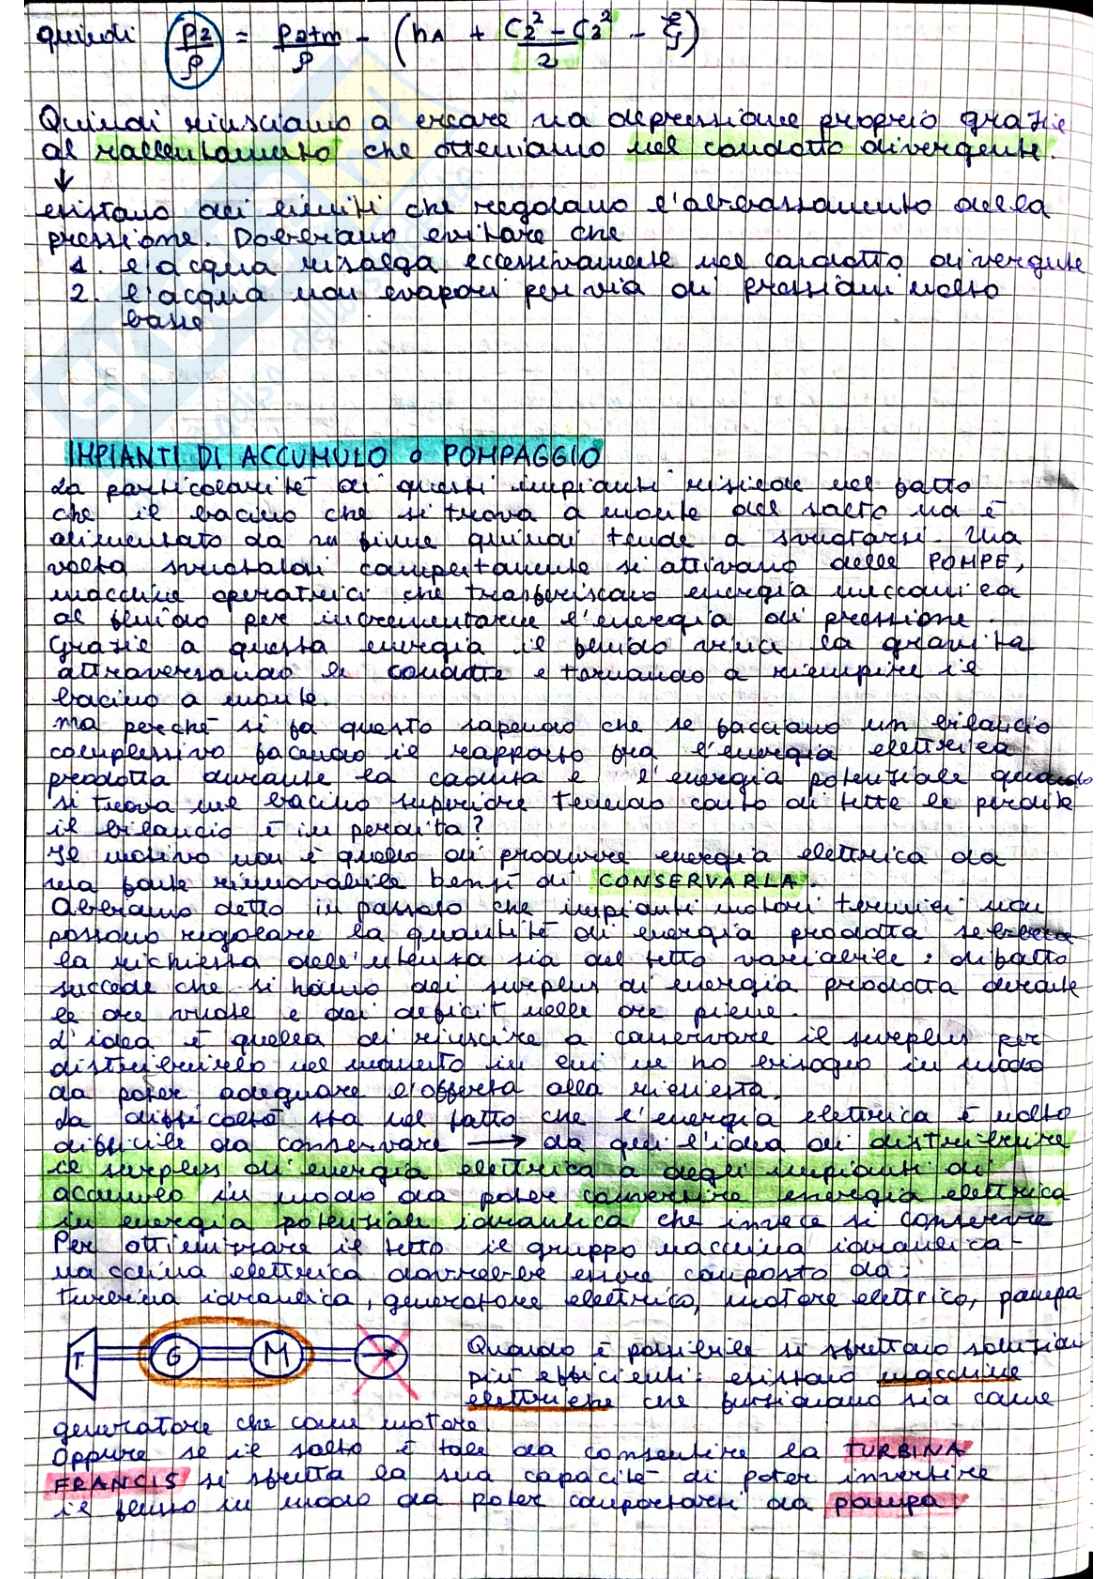 quindi p2/ρ = patm/ρ - (hA + (C2² - C3²)/2 - ξ)
Quindi riusciamo a creare una depressione proprio grazie
al rallentamento che otteniamo nel condotto divergente.
↓
esistono dei limiti che regolano l'abbassamento della
pressione. Dobbiamo evitare che
1. l'acqua risalga eccessivamente nel condotto divergente
2. l'acqua non evapori per via di pressioni molto
basse
IMPIANTI DI ACCUMULO o POMPAGGIO
La particolarità di questi impianti risiede nel fatto
che il bacino che si trova a monte del salto non è
alimentato da un fiume quindi tende a svuotarsi. Una
volta svuotatosi completamente si attivano delle POMPE,
macchine operatrici che trasferiscono energia meccanica
al fluido per incrementarne l'energia di pressione.
Grazie a questa energia il fluido vince la gravità
attraversando le condotte e tornando a riempire il
bacino a monte.
Ma perché si fa questo sapendo che se facciamo un bilancio
complessivo facendo il rapporto tra l'energia elettrica
prodotta durante la caduta e l'energia potenziale quando
si trova nel bacino superiore tenendo conto di tutte le perdite
il bilancio è in perdita?
Il motivo non è quello di produrre energia elettrica da
una fonte rinnovabile bensì di CONSERVARLA.
Abbiamo detto in passato che impianti motori termici non
possono regolare la quantità di energia prodotta sebbene
la richiesta dell'utenza sia del tutto variabile: difatto
succede che si hanno dei surplus di energia prodotta durante
le ore vuote e dei deficit nelle ore piene.
L'idea è quella di riuscire a conservare il surplus per
distribuirlo nel momento in cui ne ho bisogno in modo
da poter adeguare l'offerta alla richiesta.
La difficoltà sta nel fatto che l'energia elettrica è molto
difficile da conservare → da qui l'idea di distribuire
il surplus di energia elettrica a degli impianti di
accumulo in modo da poter convertire energia elettrica
in energia potenziale idraulica che invece si conserva
Per ottimizzare il tutto il gruppo macchina idraulica-
macchina elettrica dovrebbe essere composto da:
turbina idraulica, generatore elettrico, motore elettrico, pompa
T G M
Quando è possibile si sfruttano soluzioni
più efficienti: esistono macchine
elettriche che funzionano sia come
generatore che come motore.
Oppure se il salto è tale da consentire la TURBINA
FRANCIS si sfrutta la sua capacità di poter invertire
il flusso in modo da poter comportarsi da pompa.